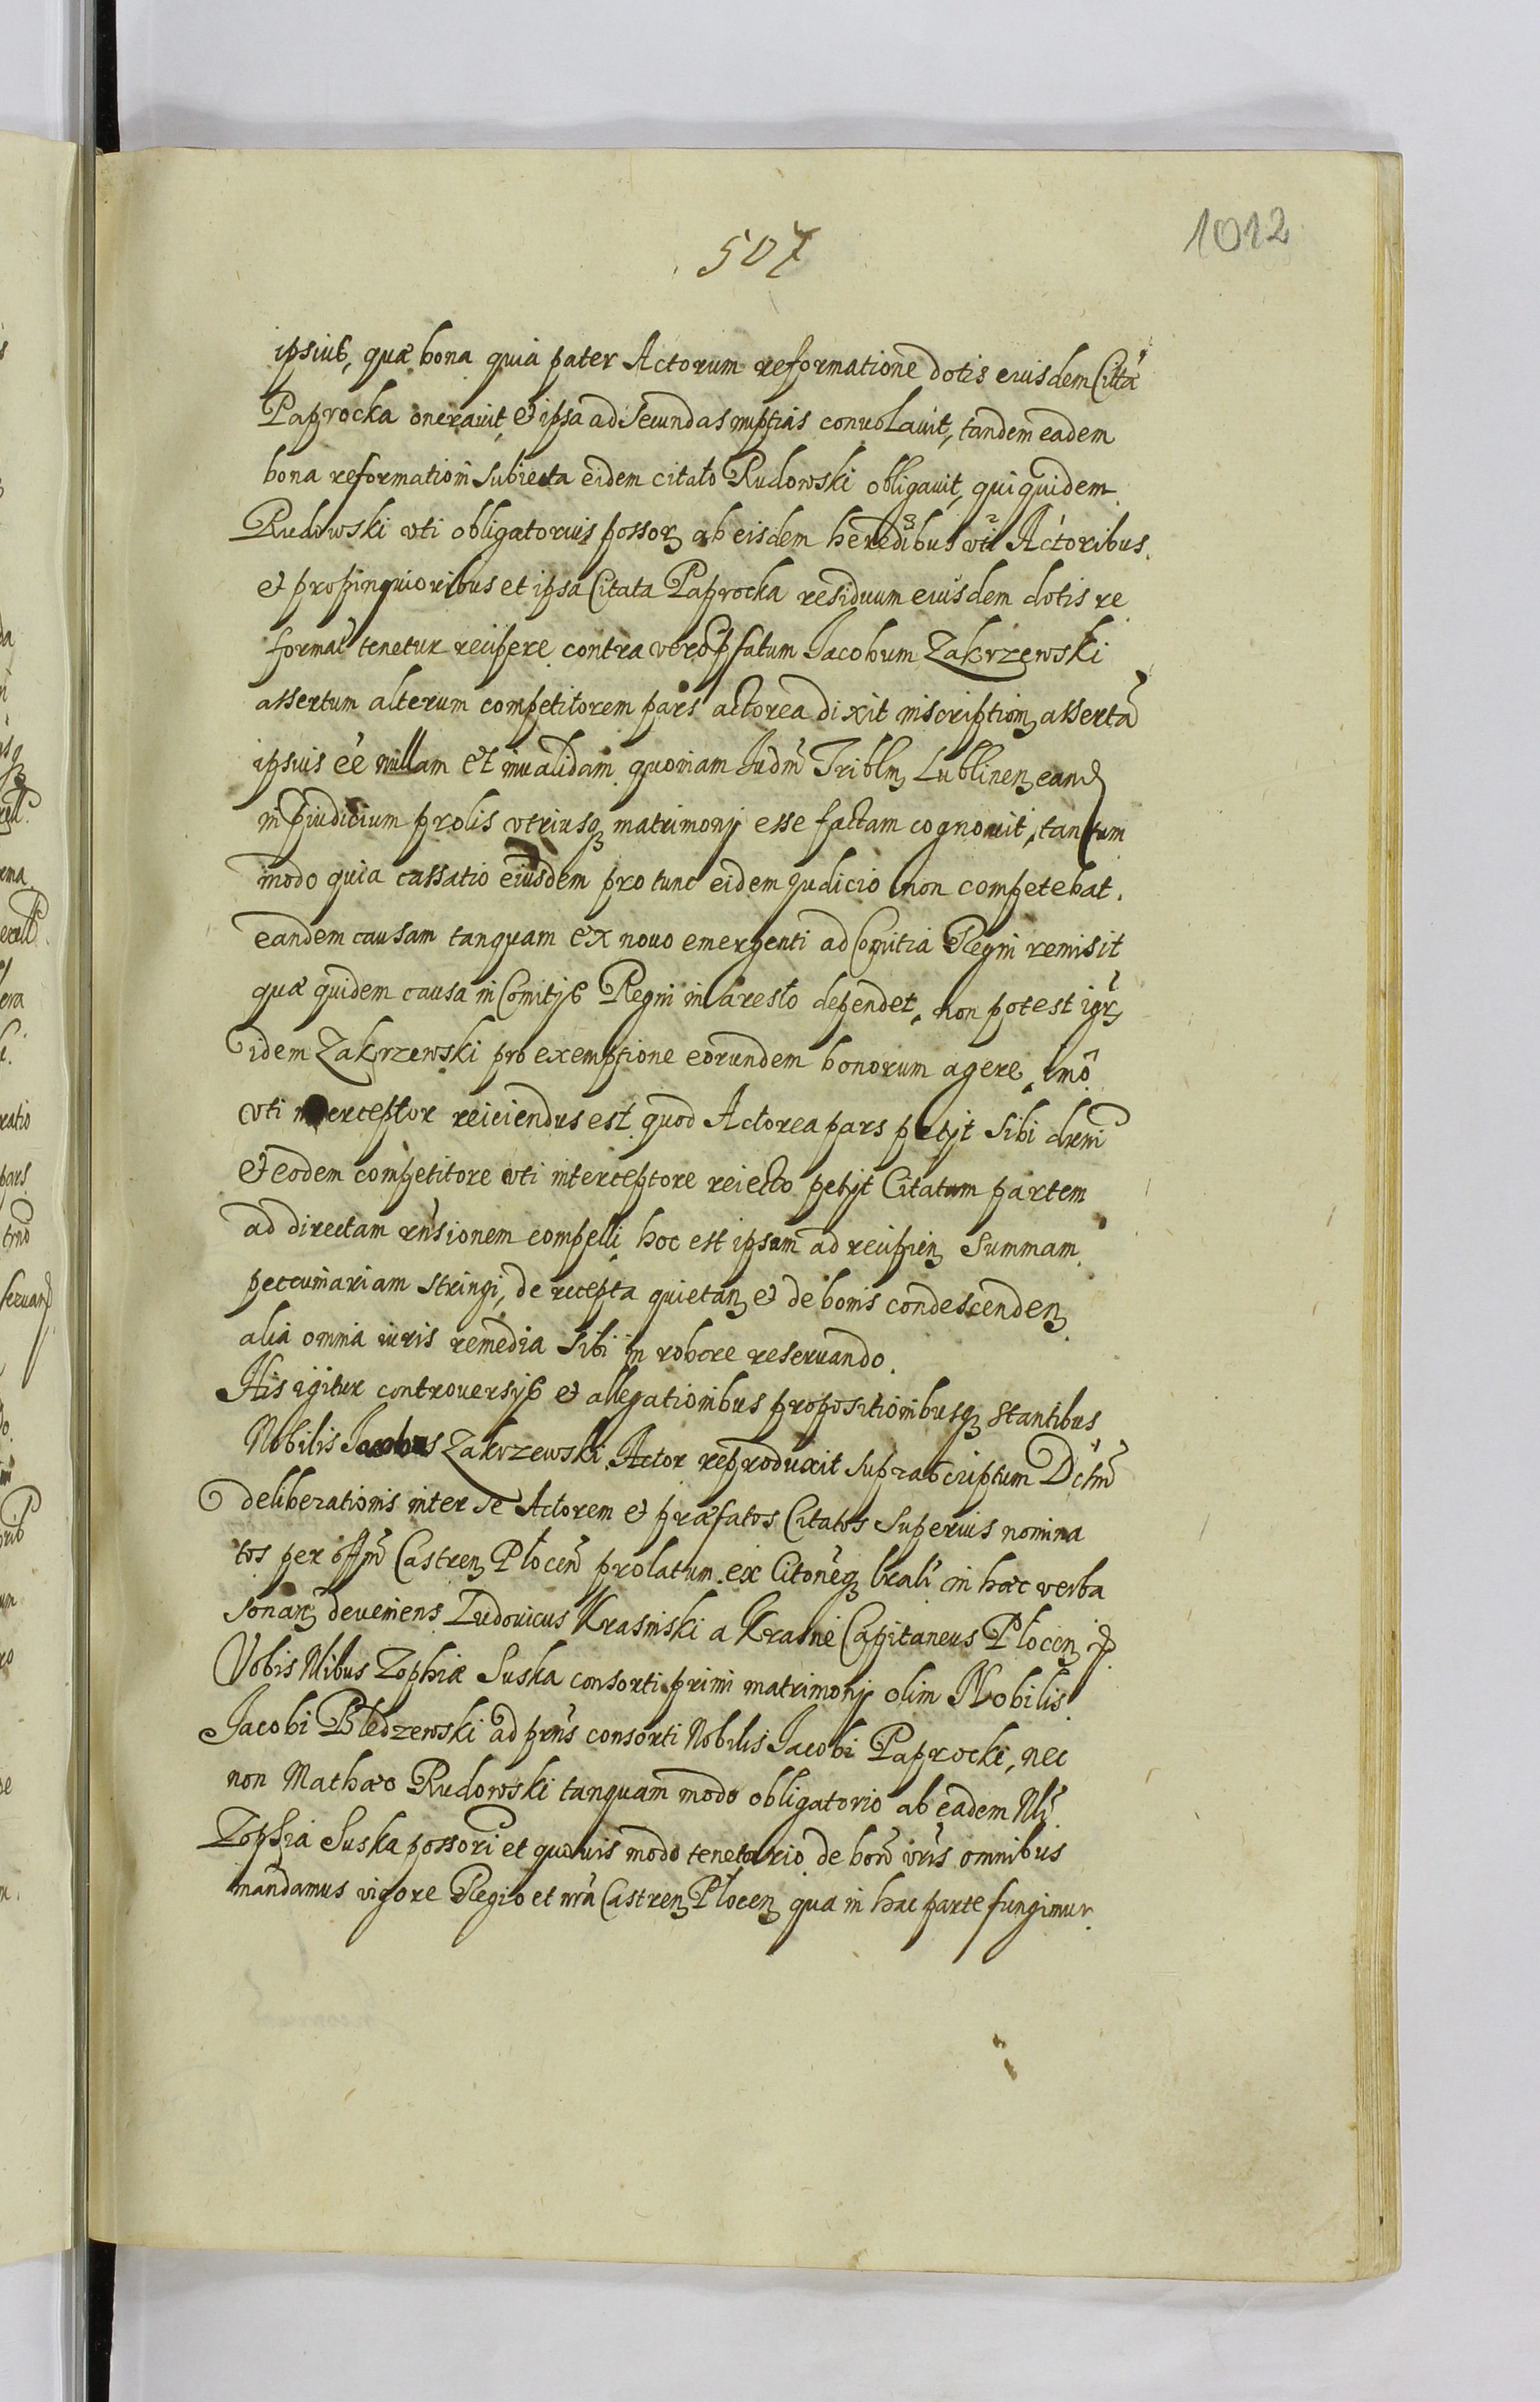 507
1012
ipsius, quæ bona quia pater Actorum reformatione dotis eiusdem Citta
Paprocka onerauit, et ipsa ad secundas nuptias conuolauit, tandem eadem
bona reformationi subiecta eidem citato Rudowski obligauit, qui quidem
Rudowski vti obligatorius possor ab eisdem heredibus vti Actoribus
et propinquioribus et ipsa Citata Paprocka residuum eiusdem dotis re
format tenetur recipere contra vero pfatum Jacobum Zakrzewski
assertum alterum competitorem pars actorea dixit inscription assertã
ipsius eê nullam et inualidam quoniam Judm Triblm Lublinen eand
in piudicium prolis vtriusq matrimonij esse factam cognouit, tantum
modo quia cassatio eiusdem pro tunc eidem Judicio non competebat.
eandem causam tanquam ex nouo emergenti ad Comitia Regni remisit
quæ quidem causa in Comitijs Regni in aresto dependet, non potest igr
idem Zakrzewski pro exemptione eorundem bonorum agere, imô
vti interceptor reiiciendus est quod Actorea pars petijt sibi decerni
et eodem competitore vti interceptore reiecto petijt Citatam partem
ad directam rnsionem compelli, hoc est ipsam ad recipien summam
peccuniariam stringi, de recepta quietan et de bonis condescenden
alia omnia iuris remedia sibi in robore reseruando.
His igitur controuersijs et allegationibus propositionibusq stantibus
Nobilis Jacobus Zakrzewski Actor reproduxit suprascriptum Dctm
deliberationis inter se Actorem et præfatos Citatos superius nomina
tos per offm Castren Plocen prolatum ex Citoneq lrali in hæc verba
sonan deueniens Ludouicus Krasinski a Krasne Capitaneus Plocen
Vobis Nlibus Zophiæ Suska consorti primi matrimonij olim Nobilis
Jacobi Bledzewski ad prns consorti Nobilis Jacobi Paprocki, nec
non Mathæo Rudowski tanquam modo obligatorio ab eadem Nli
Zophia Suska possori et quouis modo tenetario de bonis vris omnibus
mandamus vigore Regio et nra Castren Plocen qua in hac parte fungimur